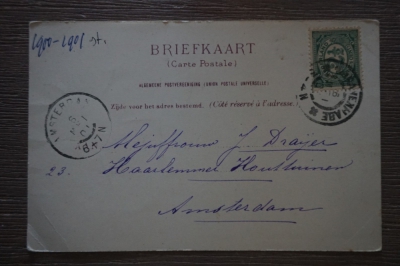 1900-1901 st.
BRIEFKAART
(Carte Postale)
ALGEMEENE POSTVEREENIGING (UNION POSTALE UNIVERSELLE)
Zijde voor het adres bestemd. (Côté réservé à l'adresse.)
AMSTERDAM
Mejuffrouw J. Draijer
23. Haarlemmer Houttuinen
Amsterdam